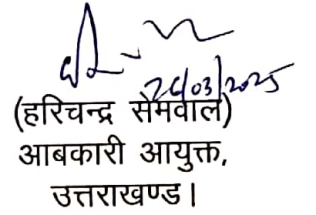 26/03/2025
(हरिचन्द्र सेमवाल)
आबकारी आयुक्त,
उत्तराखण्ड।